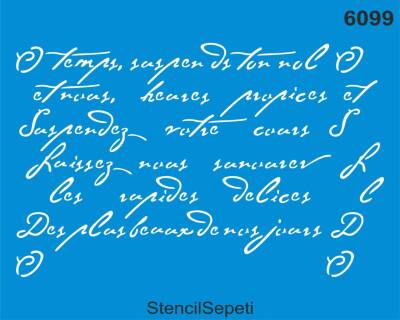 6099
O temps, suspends ton nol O
et nous, heures propices et
Suspendez votre cours S
Laissez nous sanourer L
les rapides delices l
Des plus beaux de nos jours D
O O
StencilSepeti